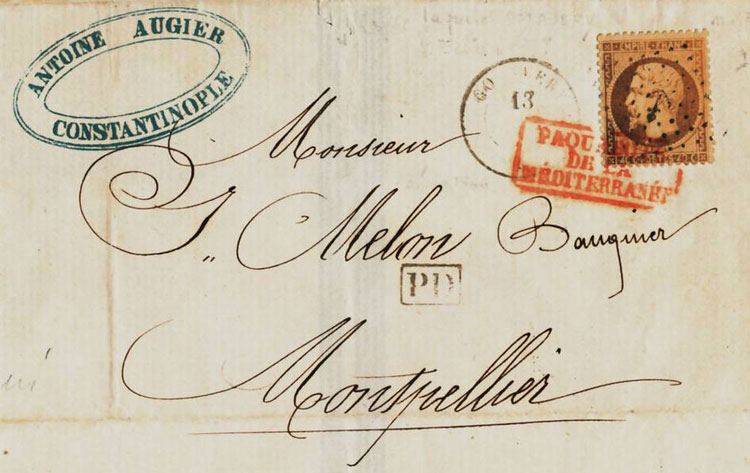 ANTOINE AUGIER
CONSTANTINOPLE
13
EMPIRE FRANC
PAQUE
DE LA
MEDITERRANÉE
Monsieur
Melon Bauquier
PD
Montpellier